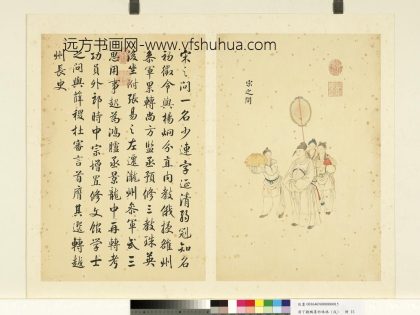 远方书画网--www.yfshuhua.com
宋之問
宋之問一名少連字延清弱冠知名
初徵令與楊炯分直內教俄授雒州
參軍累轉尚方監丞預修三教珠英
後坐附張易之左遷瀧州參軍武三
思用事起為鴻臚丞景龍中再轉考
功員外郎時中宗增置修文館學士
之問與薛稷杜審言首膺其選轉越
州長史